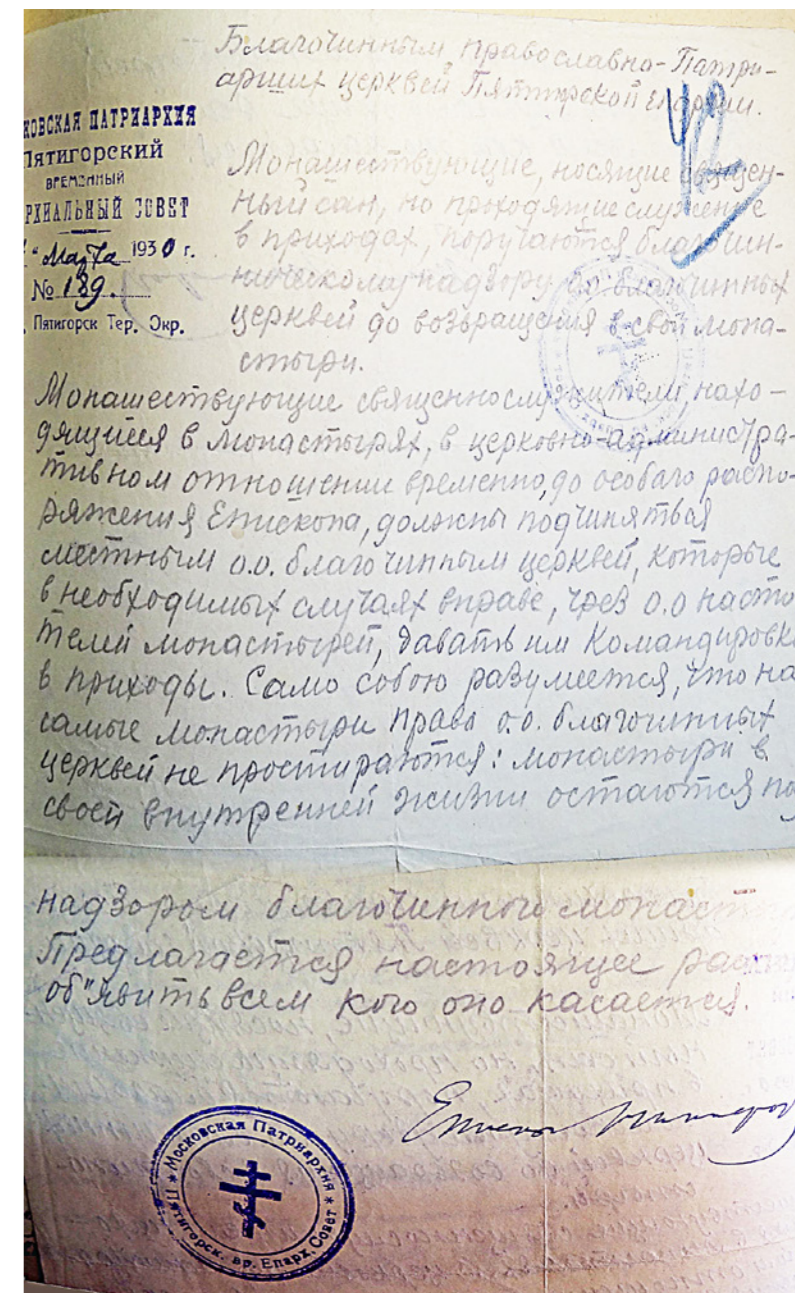 Благочинным православно-Патри-
арших церквей Пятигорской епархии.
42
КОВСКАЯ ПАТРІАРХІЯ
Пятигорский
временный
РХИАЛЬНЫЙ СОВЕТ
" Марта 1930 г.
№ 189.
Пятигорск Тер. Окр.
Монашествующие, носящие священ-
ный сан, но проходящие служение
в приходах, поручаются благочин-
ническому надзору о.о. благочинных
церквей до возвращения в свои мона-
стыри.
Монашествующие священнослужители, нахо-
дящиеся в монастырях, в церковно-администра-
тивном отношении временно, до особаго распо-
ряжения Епископа, должны подчиняться
местным о.о. благочинным церквей, которые
в необходимых случаях вправе, чрез о.о насто
телей монастырей, давать им командировк
в приходы. Само собою разумеется, что на
самые монастыри права о.о. благочинных
церквей не простираются: монастыри в
своей внутренней жизни остаются по
надзором благочинного монаст
Предлагается настоящее рас
об"явить всем кого оно касается.
Епископ
Московская Патриархия * Пятигорск. вр. Епарх. Совет *